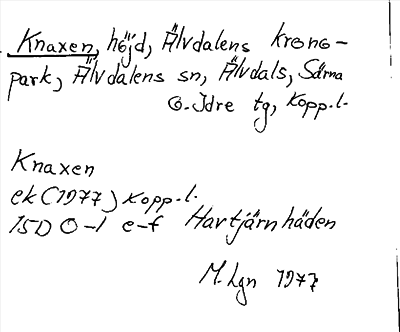 Knaxen, höjd, Älvdalens krono-
park, Älvdalens sn, Älvdals, Särna
o. Idre tg, Kopp.l.
Knaxen
ek (1977) Kopp.l.
15D 0-1 e-f Hartjärnhäden
M. Lgn 1977